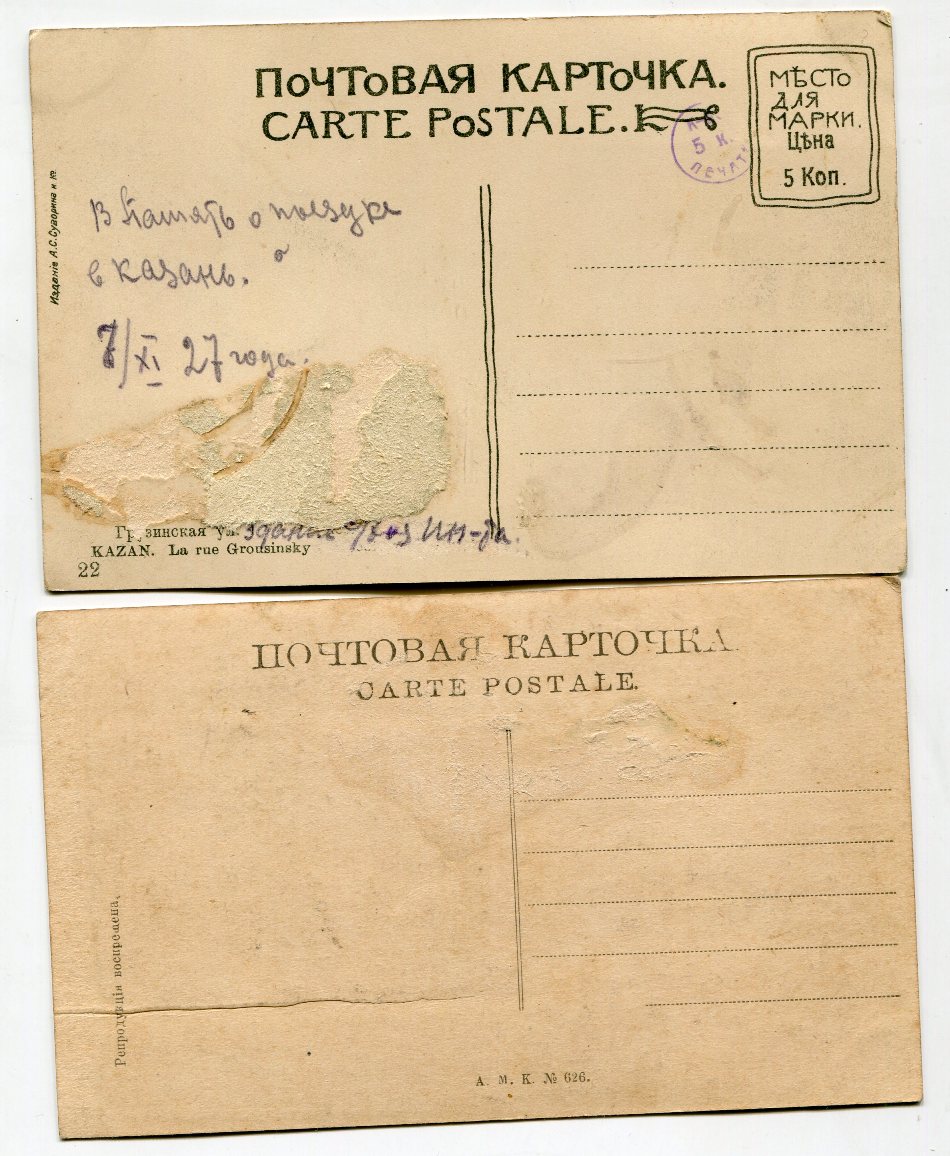 ПОЧТОВАЯ КАРТОЧКА.
CARTE POSTALE.
МѢСТО
ДЛЯ
МАРКИ.
Цѣна
5 Коп.
5 К.
ПЕЧАТ
Изданіе А.С.Суворина и Ко
В память о поездке
в казань.
7/XI 27 года.
Грузинская ул. здание
KAZAN. La rue Grousinsky
22
ПОЧТОВАЯ КАРТОЧКА.
CARTE POSTALE.
Репродукція воспрещена.
А. М. К. № 626.